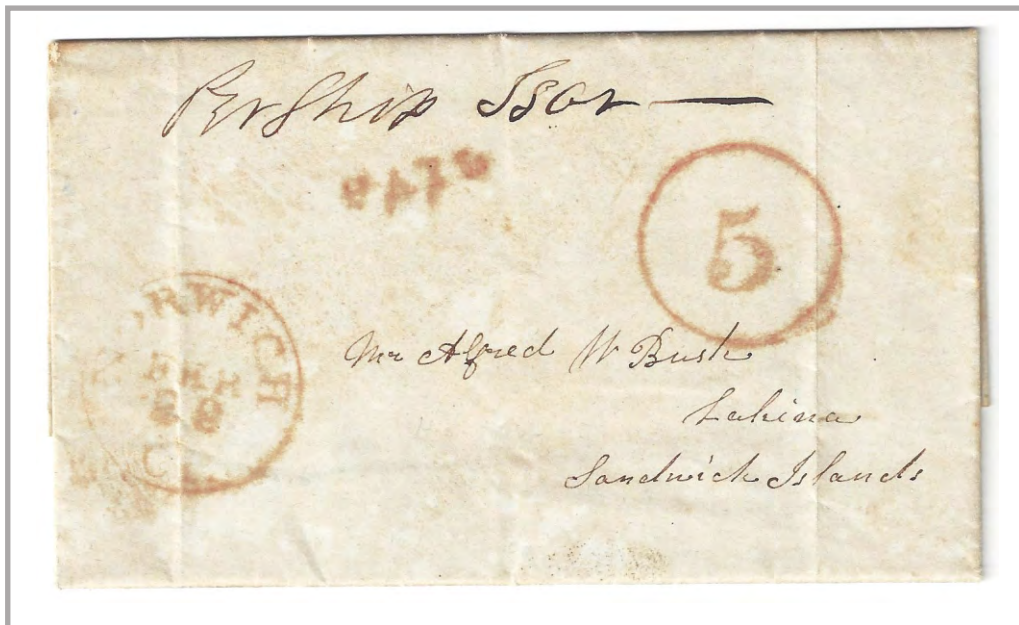 Per Ship Tsar —
5
NORWICH
Mr Alfred W Bush
Lahina
Sandwich Islands